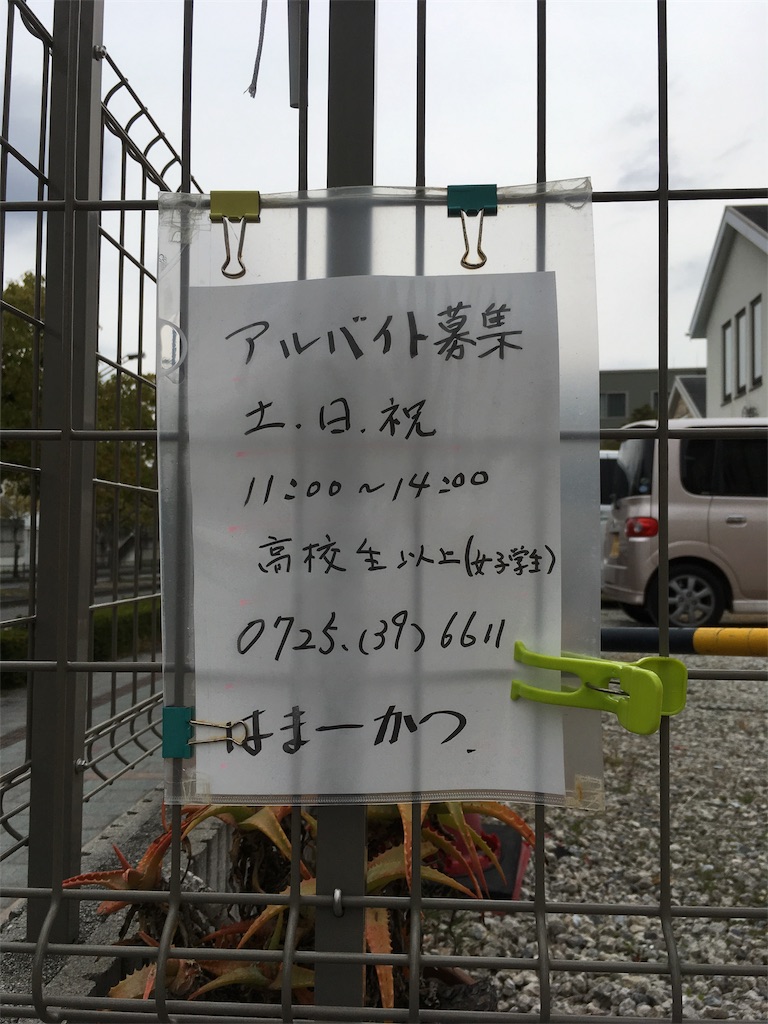 アルバイト募集
土.日.祝
11:00~14:00
高校生以上(女子学生)
0725.(39)6611
はまーかつ.